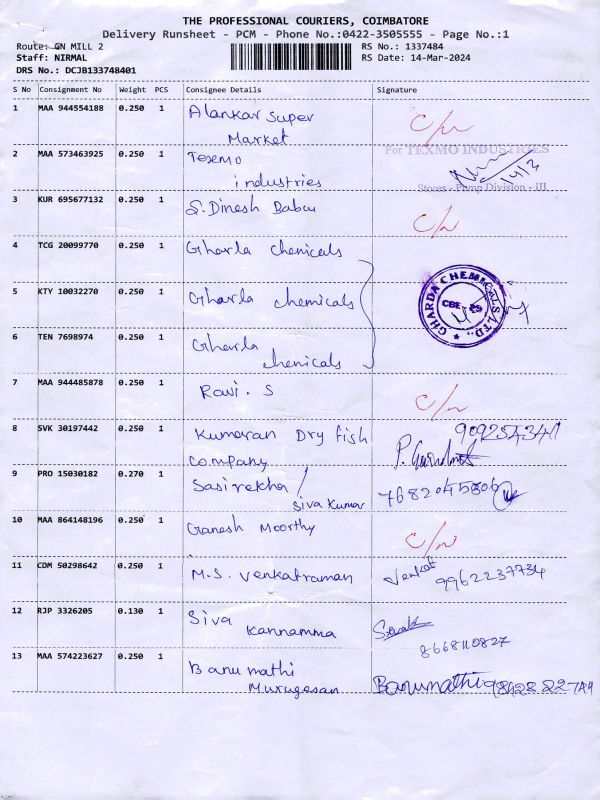 THE PROFESSIONAL COURIERS, COIMBATORE
Delivery Runsheet - PCM - Phone No.:0422-3505555 - Page No.:1
Route: GN MILL 2 RS No.: 1337484
Staff: NIRMAL RS Date: 14-Mar-2024
DRS No.: DCJB133748401
S No Consignment No Weight PCS Consignee Details Signature
1 MAA 944554188 0.250 1 Alankar Super
Market C/n
2 MAA 573463925 0.250 1 Texmo
industries
For TEXMO INDUSTRIES
14/3
Stores - Pump Division - III
3 KUR 695677132 0.250 1 S. Dinesh Babu C/n
4 TCG 20099770 0.250 1 Gharla chemicals
5 KTY 10032270 0.250 1 Gharla chemicals
GHARDA CHEMICALS LTD.,
CBE
6 TEN 7698974 1 0.250 1 Gharla
chemicals
7 MAA 944485878 0.250 1 Ravi . S C/n
8 SVK 30197442 0.250 1 Kumaran Dry fish
company
9 PRO 15030182 0.270 1 Sasirekha /
Siva Kumar
10 MAA 864148196 0.250 1 Ganesh Moorthy C/n
11 CDM 50298642 0.250 1 M.S. Venkatraman Venkat
9962237734
12 RJP 3326205 0.130 1 Siva
Kannamma
8668110827
13 MAA 574223627 0.250 1 Banumathi
Murugesan Banumathi